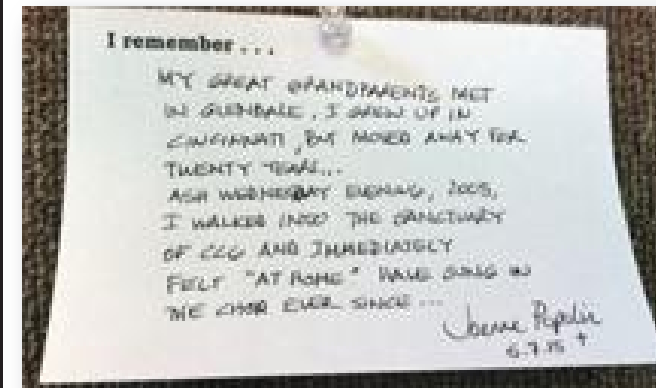 I remember...
MY GREAT GRANDPARENTS MET
IN GLENDALE, I GREW UP IN
CINCINNATI, BUT MOVED AWAY FOR
TWENTY YEARS...
ASH WEDNESDAY EVENING, 2005,
I WALKED INTO THE SANCTUARY
OF CCG AND IMMEDIATELY
FELT "AT HOME" HAVE SUNG IN
THE CHOIR EVER SINCE...
6.7.15